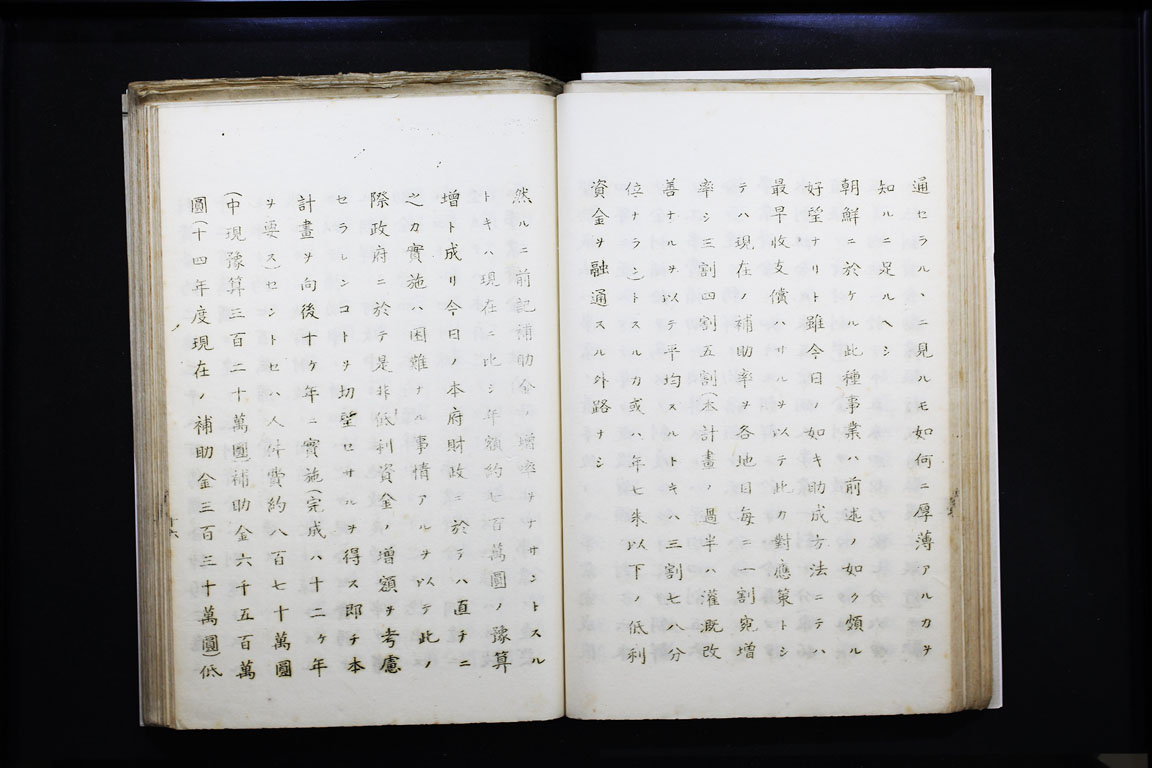 通セラルヽニ見ルモ如何ニ厚薄アルカヲ
知ルニ足ルヘシ
朝鮮ニ於ケル此種事業ハ前述ノ如ク頗ル
好望ナリト雖今日ノ如キ助成方法ニテハ
最早收支償ハサルヲ以テ此カ對應策トシ
テハ現在ノ補助率ヲ各地目毎ニ一割宛増
率シ三割四割五割(本計畫ノ過半ハ灌漑改
善ナルヲ以テ平均スルトキハ三割七八分
位ナラン)トスルカ或ハ年七朱以下ノ低利
資金ヲ融通スル外路ナシ
然ルニ前記補助金ノ増率ヲナサントスル
トキハ現在ニ比シ年額約七百萬圓ノ豫算
増ト成リ今日ノ本府財政ニ於テハ直チニ
之カ實施ハ困難ナル事情アルヲ以テ此ノ
際政府ニ於テ是非低利資金ノ増額ヲ考慮
セラレンコトヲ切望セサルヲ得ス即チ本
計畫ヲ向後十ケ年ニ實施(完成ハ十二ケ年
ヲ要ス)セントセハ人件費約八百七十萬圓
(中現豫算三百二十萬圓)補助金六千五百萬
圓(十四年度現在ノ補助金三百三十萬圓)低
十六